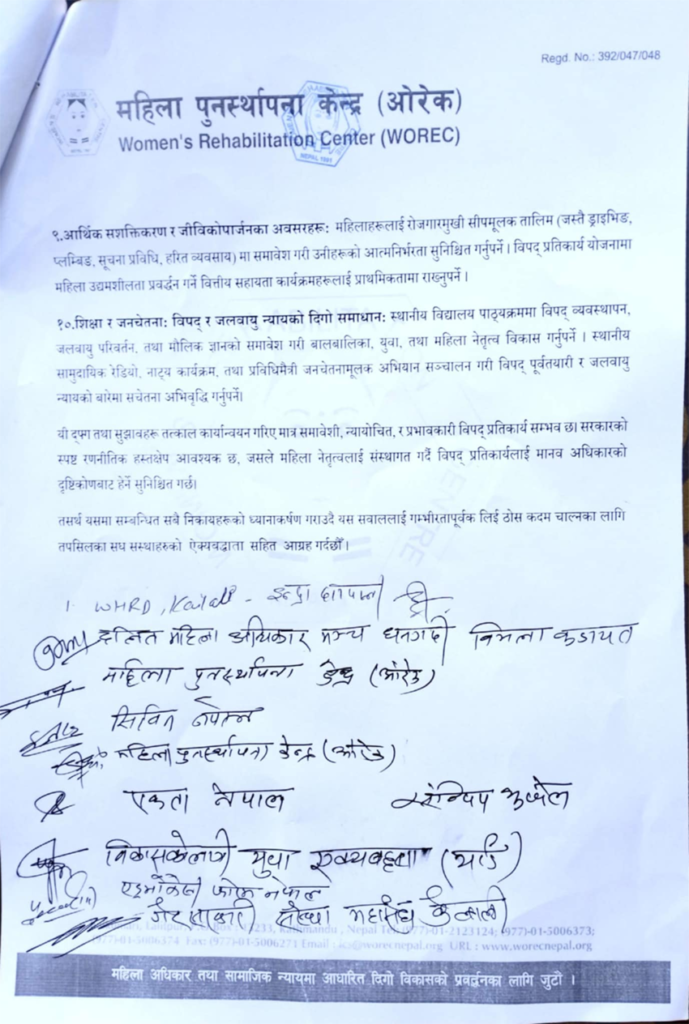 Regd. No.: 392/047/048
महिला पुनर्स्थापना केन्द्र (ओरेक)
Women's Rehabilitation Center (WOREC)
९.आर्थिक सशक्तिकरण र जीविकोपार्जनका अवसरहरू: महिलाहरूलाई रोजगारमुखी सीपमूलक तालिम (जस्तै ड्राइभिङ,
प्लम्बिङ, सूचना प्रविधि, हरित व्यवसाय) मा समावेश गरी उनीहरूको आत्मनिर्भरता सुनिश्चित गर्नुपर्ने । विपद् प्रतिकार्य योजनामा
महिला उद्यमशीलता प्रवर्द्धन गर्ने वित्तीय सहायता कार्यक्रमहरूलाई प्राथमिकतामा राख्नुपर्ने ।
१०.शिक्षा र जनचेतना: विपद् र जलवायु न्यायको दिगो समाधान: स्थानीय विद्यालय पाठ्यक्रममा विपद् व्यवस्थापन,
जलवायु परिवर्तन, तथा मौलिक ज्ञानको समावेश गरी बालबालिका, युवा, तथा महिला नेतृत्व विकास गर्नुपर्ने । स्थानीय
सामुदायिक रेडियो, नाट्य कार्यक्रम, तथा प्रविधिमैत्री जनचेतनामूलक अभियान सञ्चालन गरी विपद् पूर्वतयारी र जलवायु
न्यायको बारेमा सचेतना अभिवृद्धि गर्नुपर्ने।
यी तथा सुझावहरू तत्काल कार्यान्वयन गरिए मात्र समावेशी, न्यायोचित, र प्रभावकारी विपद् प्रतिकार्य सम्भव छ। सरकारको
स्पष्ट रणनीतिक हस्तक्षेप आवश्यक छ, जसले महिला नेतृत्वलाई संस्थागत गर्दै विपद् प्रतिकार्यलाई मानव अधिकारको
दृष्टिकोणबाट हेर्ने सुनिश्चित गर्छ।
तसर्थ यसमा सम्बन्धित सबै निकायहरूको ध्यानाकर्षण गराउदै यस सवाललाई गम्भीरतापूर्वक लिई ठोस कदम चाल्नका लागि
तपसिलका संघ संस्थाहरुको ऐक्यबद्धता सहित आग्रह गर्दछौँ ।
1. WHRD, Kailali - इन्द्रा
दलित महिला अधिकार मञ्च धनगढी निर्मला कडायत
महिला पुनर्स्थापना केन्द्र (ओरेक)
सिविन नेपाल
महिला पुनर्स्थापना केन्द्र (ओरेक)
एकता नेपाल
युवा
नेपाल
गैर सरकारी संस्था महासंघ कैलाली
(977)-01-2123124; (977)-01-5006373;
(977)-01-5006374 Fax: (977)-01-5006271 Email : ics@worecnepal.org URL : www.worecnepal.org
महिला अधिकार तथा सामाजिक न्यायमा आधारित दिगो विकासको प्रवर्द्धनका लागि जुटौं ।